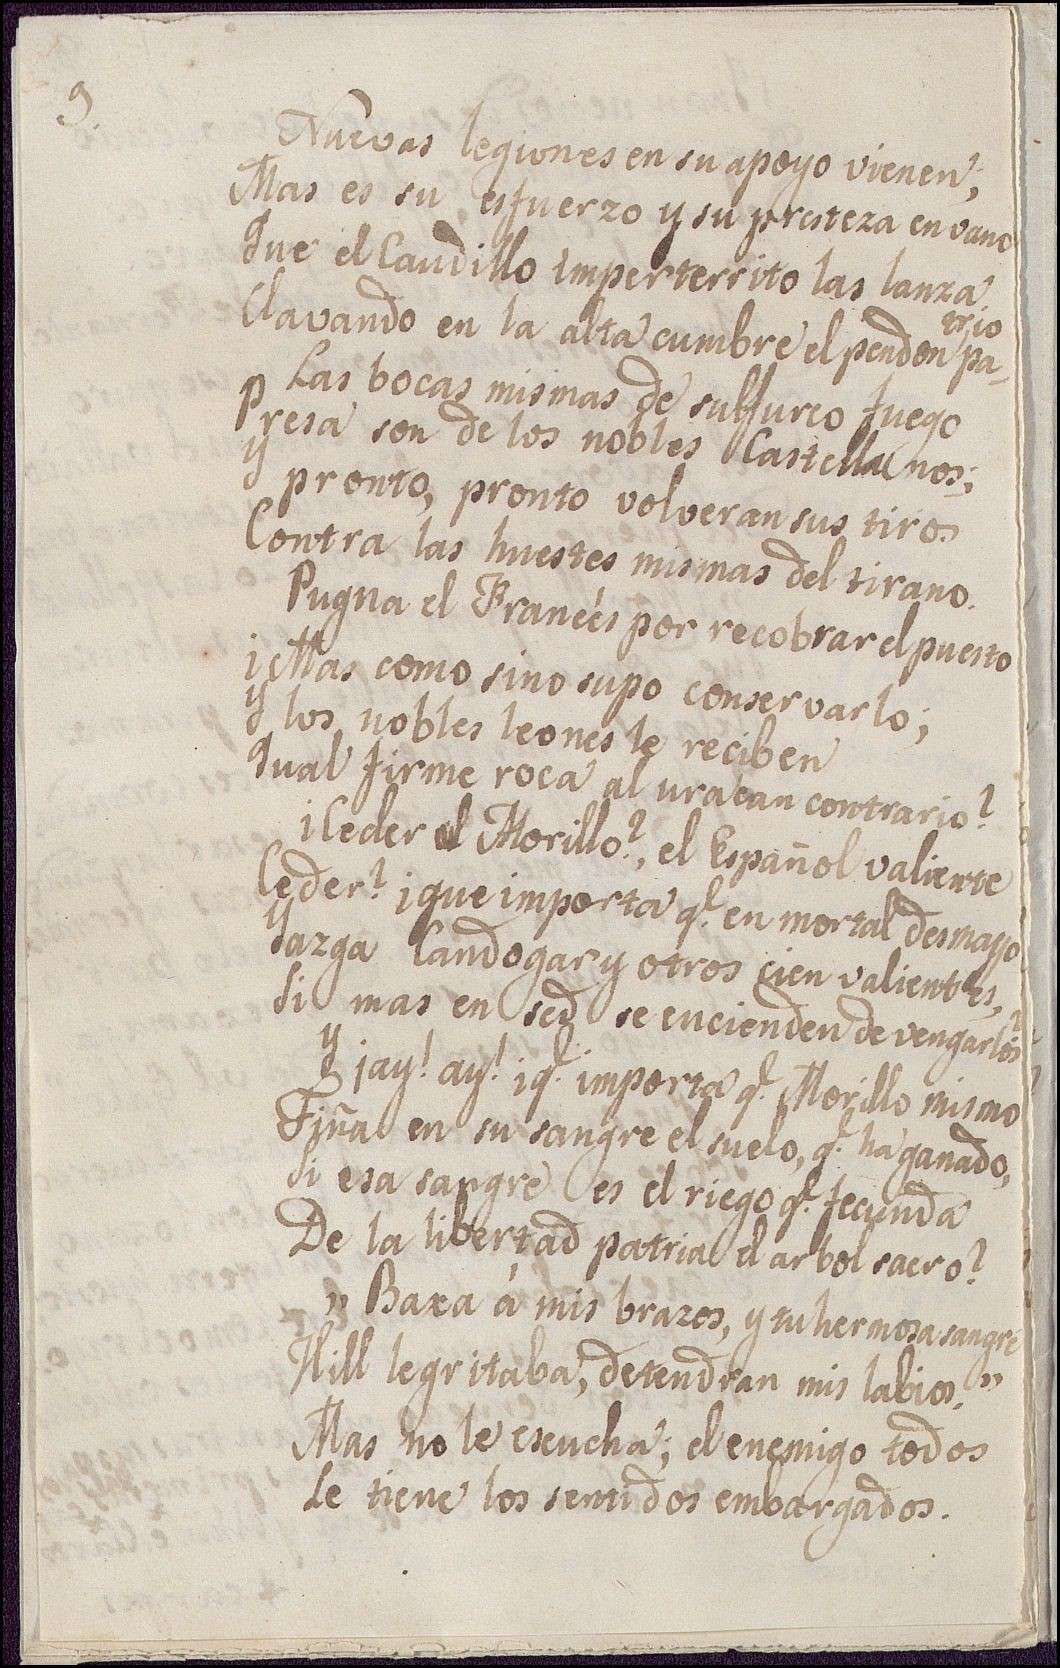 9.
Nuevas legiones en su apoyo vienen;
Mas es su esfuerzo y su presteza en vano
Que el Caudillo imperterrito las lanza
Clavando en la alta cumbre el pendon pa-
trio
Las bocas mismas de sulfureo fuego
Presa son de los nobles Castellanos;
y pronto, pronto volveran sus tiros
Contra las huestes mismas del tirano.
Pugna el Francés por recobrar el puesto
¡Mas como sino supo conservarlo;
y los nobles leones le reciben
Qual firme roca al uracan contrario?
¡Ceder el Morillo?, el Español valiente
Ceder? ¡que importa q.e en mortal desmayo
yazga Candogar y otros cien valientes,
Si mas en sed se encienden de vengarlos?
y ¡ay! ay! ¡q.e importa q.e Morillo mismo
Tiña en su sangre el suelo, q.e ha ganado,
Si esa sangre es el riego q.e fecunda
De la libertad patria el arbol sacro?
" Baxa á mis brazos, y tu hermosa sangre
Hill le gritaba, detendran mis labios. "
Mas no le escucha; el enemigo todos
Le tiene los sentidos embargados.